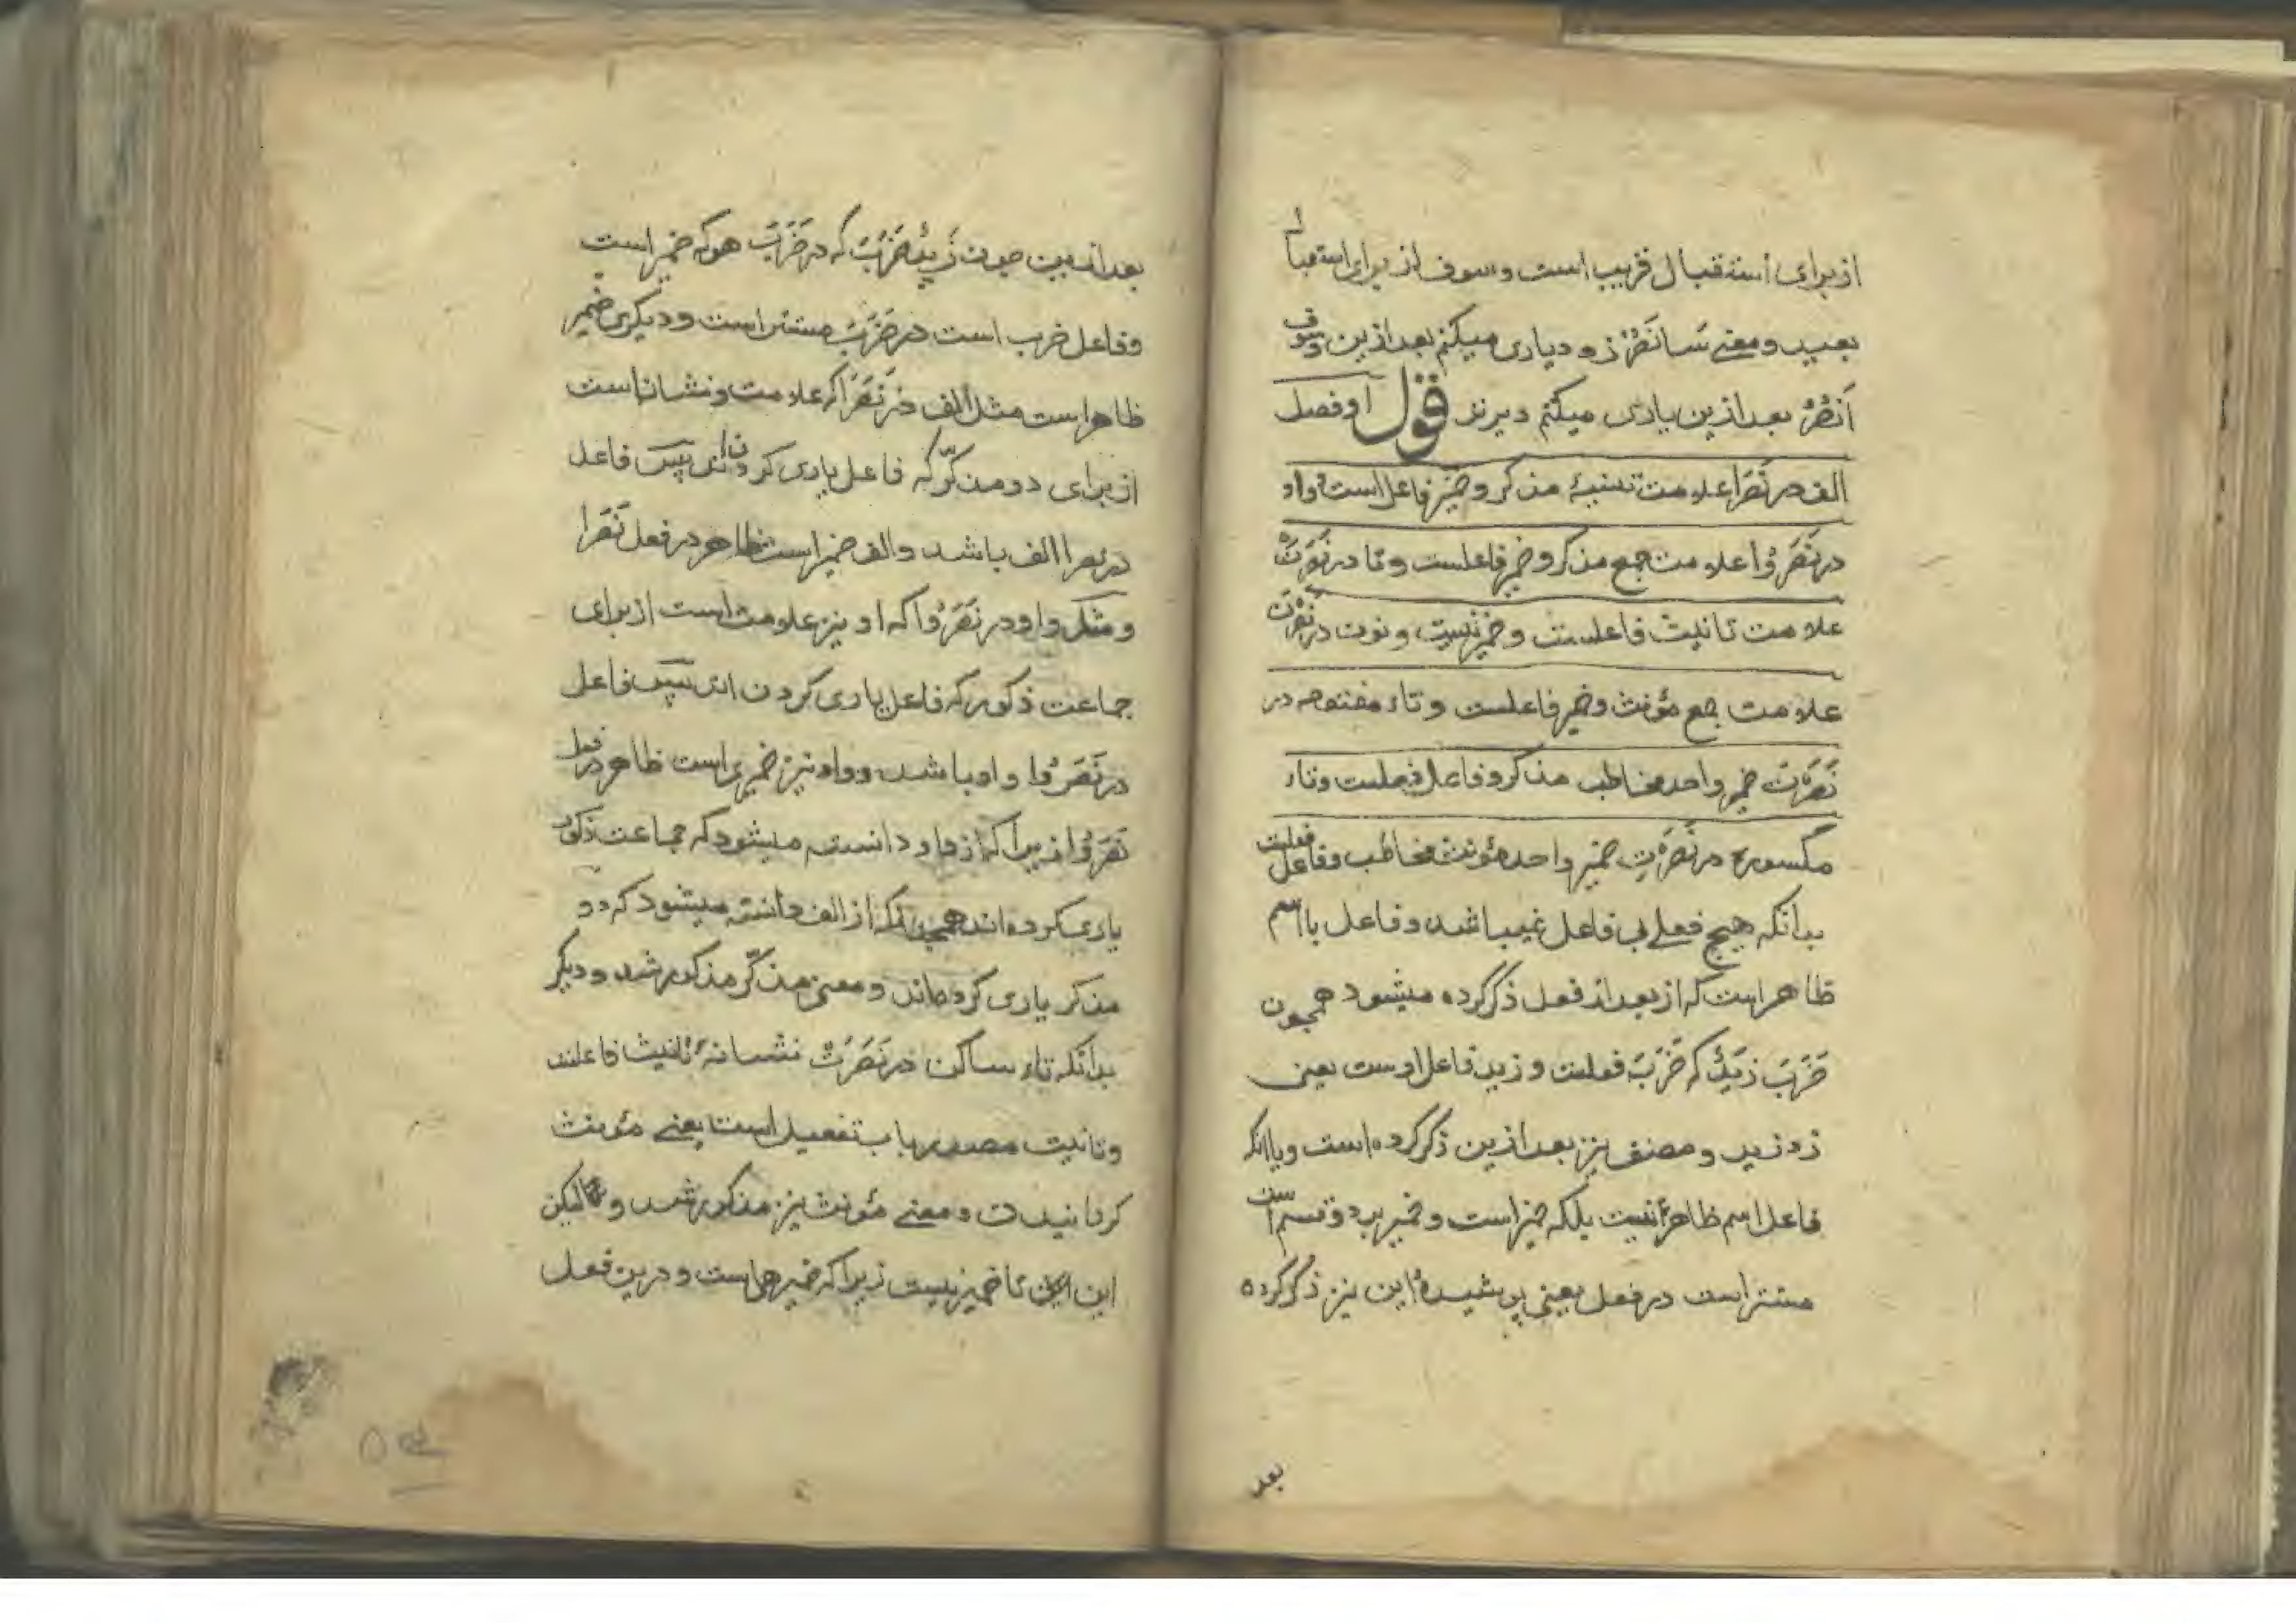 از برای استقبال قریب است و سوف از برای استقبال
بعید و معنے سَانَصُرُ زود یاری میکنم بعد ازین و سوف
اَنْصُرُ بعد ازین یاری میکنم دیرتر قول او فصل
الف در نَصَرَا علامت تثنیهٔ مذکر و ضمیر فاعل است و واو
در نَصَرُوْا علامت جمع مذکر و ضمیر فاعلست و تا در نَصَرَتْ
علامت تانیث فاعلست و ضمیر نیست و نون در نَصَرْنَ
علامت جمع مؤنث و ضمیر فاعلست و تاء مفتوحه در
نَصَرْتَ ضمیر واحد مخاطب مذکر و فاعل فعلست و تاء
مکسوره در نَصَرْتِ ضمیر واحد مؤنث مخاطب و فاعل فعلست
بدانکه هیچ فعلے بی فاعل نمیباشد و فاعل یا اسم
ظاهر است که از بعد از فعل ذکر کرده میشود همچون
ضَرَبَ زَیْدٌ که ضَرَبَ فعلست و زید فاعل اوست یعنی
زد زید و مصنف نیز بعد ازین ذکر کرده است و یا انکه
فاعل اسم ظاهر نیست بلکه ضمیر است و ضمیر بر دو قسم است
مستتر است در فعل یعنی پوشیده این نیز ذکر کرده
بعد
بعد ازین چون زَیْدٌ ضَرَبَ که در ضَرَبَ هو که ضمیر است
و فاعل ضرب است در ضَرَبَ مستتر است و دیکری ضمیر
ظاهر است مثل الف در نَصَرَا که علامت و نشان است
از برای دو مذکّر که فاعل یاری کردن اند پس فاعل
در نصرا الف باشد و الف ضمیر است ظاهر در فعل نَصَرَا
و مثل واو در نَصَرُوْا که او نیز علامت است از برای
جماعت ذکور که فاعل یاری کردن اند پس فاعل
در نَصَرُوْا واو باشد و واو نیز ضمیری است ظاهر در فعل
نَصَرُوْا زیرا که از واو دانسته میشود که جماعت ذکور
یاری کرده اند همچنانکه از الف دانسته میشود که دو
مذکر یاری کرده اند و معنی مذکّر مذکور شد و دیکر
بدانکه تاء ساکن در نَصَرَتْ نشانهٔ تانیث فاعلند
و تانیث مصدر باب تفعیل است یعنے مؤنث
کردانیدن و معنے مؤنث نیز مذکور شد و لیکن
این تا ضمیر نیست زیرا که ضمیر هی است و درین فعل